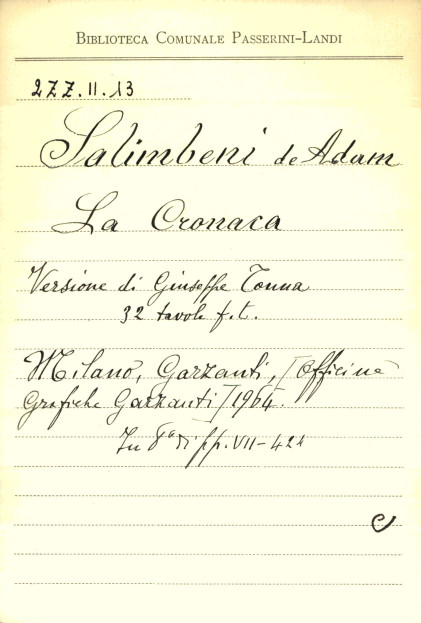 BIBLIOTECA COMUNALE PASSERINI-LANDI
277.II.13
Salimbeni de Adam
La Cronaca
Versione di Giuseppe Tonna
32 tavole f.t.
Milano, Garzanti, /Officine
Grafiche Garzanti/ 1964.
In 8° di pp. VII-424